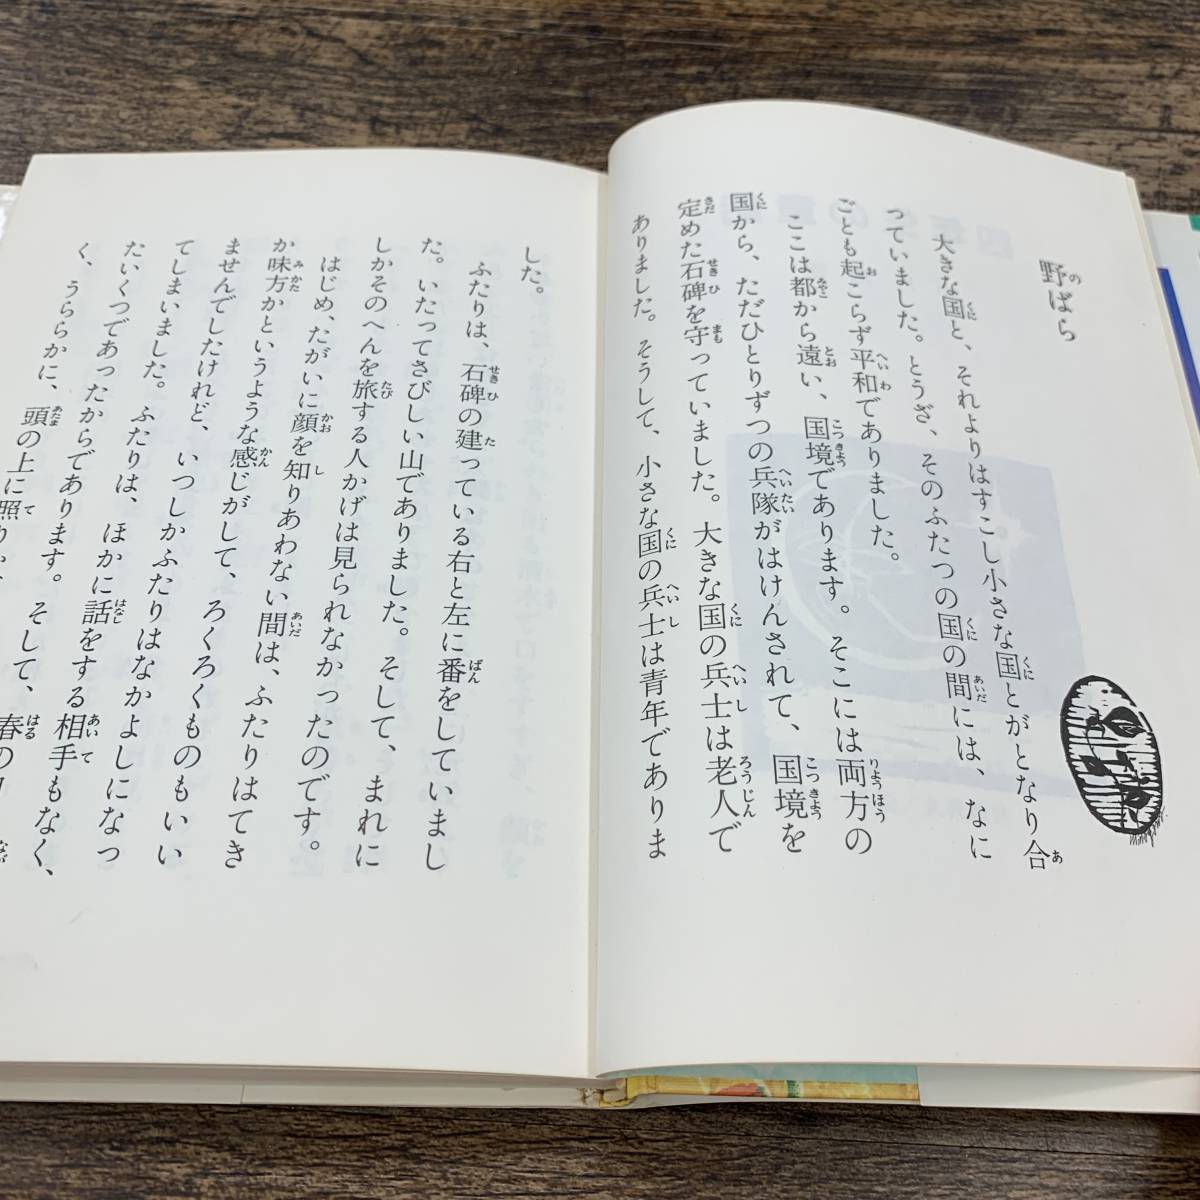 野ばら
大きな国と、それよりはすこし小さな国とがとなり合
っていました。とうざ、そのふたつの国の間には、なに
ごとも起こらず平和でありました。
ここは都から遠い、国境であります。そこには両方の
国から、ただひとりずつの兵隊がはけんされて、国境を
定めた石碑を守っていました。大きな国の兵士は老人で
ありました。そうして、小さな国の兵士は青年でありま
した。
ふたりは、石碑の建っている右と左に番をしていまし
た。いたってさびしい山でありました。そして、まれに
しかそのへんを旅する人かげは見られなかったのです。
はじめ、たがいに顔を知りあわない間は、ふたりはてき
か味方かというような感じがして、ろくろくものもいい
ませんでしたけれど、いつしかふたりはなかよしになっ
てしまいました。ふたりは、ほかに話をする相手もなく、
たいくつであったからであります。そして、春の
く、うららかに、頭の上に照り